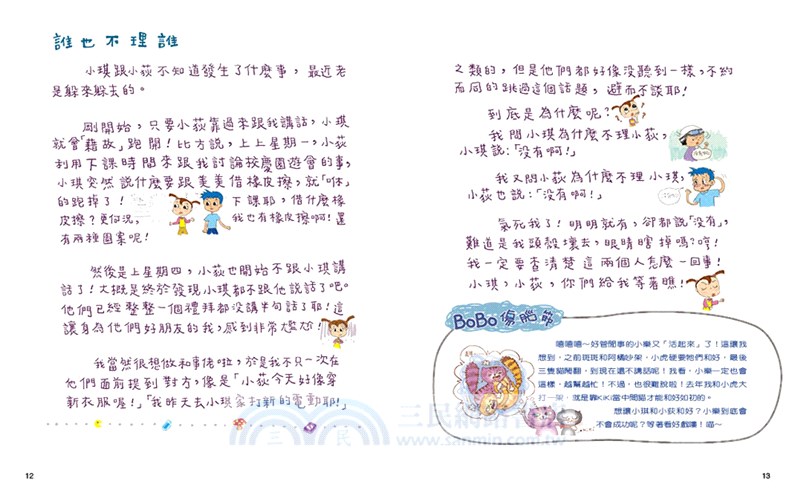 誰也不理誰
小琪跟小荻不知道發生了什麼事，最近老
是躲來躲去的。
剛開始，只要小荻靠過來跟我講話，小琪
就會「藉故」跑開！比方說，上上星期一，小荻
利用下課時間來跟我討論校慶園遊會的事，
小琪突然說什麼要跟美美借橡皮擦，就「咻」
的跑掉了！下課耶，借什麼橡
皮擦？更何況，我也有橡皮擦啊！還
有兩種圖案呢！
然後是上星期四，小荻也開始不跟小琪講
話了！大概是終於發現小琪都不跟他說話了吧。
他們已經整整一個禮拜都沒講半句話了耶！這
讓身為他們好朋友的我，感到非常尷尬！
我當然很想做和事佬啦，於是我不只一次在
他們面前提到對方，像是「小荻今天好像穿
新衣服喔！」「我昨天去小琪家打新的電動耶！」
12
之類的，但是他們都好像沒聽到一樣，不約
而同的跳過這個話題，避而不談耶！
到底是為什麼呢？
我問小琪為什麼不理小荻，
小琪說：「沒有啊！」
我又問小荻為什麼不理小琪，
小荻也說：「沒有啊！」
氣死我了！明明就有，卻都說「沒有」，
難道是我頭殼壞去，眼睛瞎掉嗎？哼！
我一定要查清楚這兩個人怎麼一回事！
小琪，小荻，你們給我等著瞧！
BoBo傷腦筋
嘻嘻嘻～好管閒事的小樂又「活起來」了！這讓我
想到，之前斑斑和阿橘吵架，小虎硬要她們和好，最後
三隻貓鬧翻，到現在還不講話呢！我看，小樂一定也會
這樣，越幫越忙！不過，也很難說啦！去年我和小虎大
打一架，就是靠KiKi當中間貓才能和好如初的。
想讓小琪和小荻和好？小樂到底會
不會成功呢？等著看好戲囉！喵～
13
三民網路書店
www.sanmin.com.tw